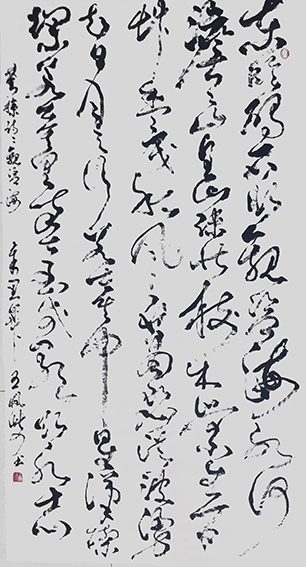 東臨碣石以觀滄海水何
澹澹山島竦峙樹木叢生百
草豐茂秋風蕭瑟洪波湧
起日月之行若出其中星漢燦
爛若出其里幸甚至哉歌以詠志
曹操詩觀滄海